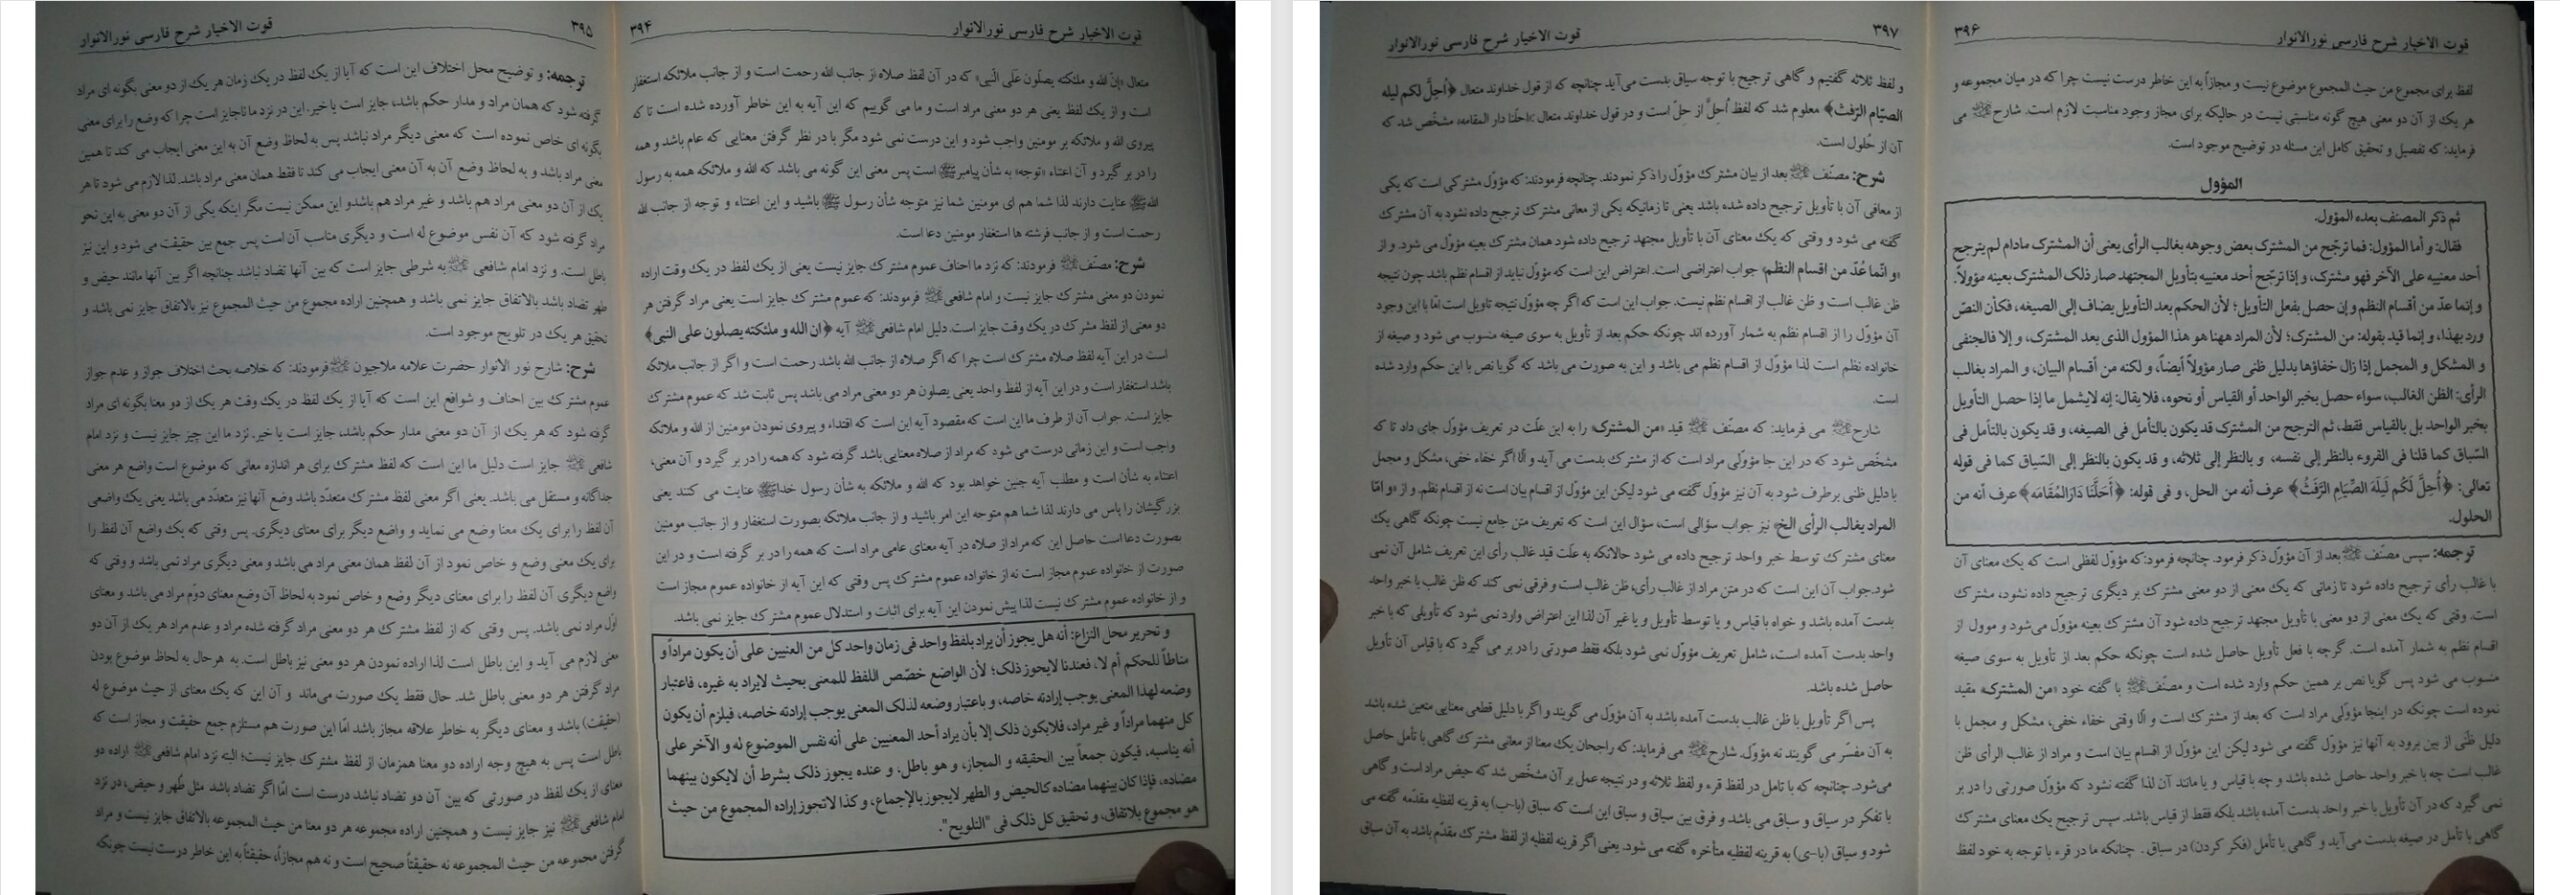 ۳۹۴ قوت الاخیار شرح فارسی نورالانوار
متعال «إنّ الله و ملئکته یصلّون عَلَی الّنبی» که در آن لفظ صلاه از جانب الله رحمت است و از جانب ملائکه استغفار
است و از یک لفظ یعنی هر دو معنی مراد است و ما می گوییم که این آیه به این خاطر آورده شده است تا که
پیروی الله و ملائکه بر مومنین واجب شود و این درست نمی شود مگر با در نظر گرفتن معنایی که عام باشد و همه
را در بر گیرد و آن اعتناء «توجه» به شأن پیامبرﷺ است پس معنی این گونه می باشد که الله و ملائکه همه به رسول
اللهﷺ عنایت دارند لذا شما هم ای مومنین شما نیز متوجه شأن رسول ﷺ باشید و این اعتناء و توجه از جانب الله
رحمت است و از جانب فرشته ها استغفار مومنین دعا است.
شرح: مصنّف فرمودند: که نزد ما احناف عموم مشترک جایز نیست یعنی از یک لفظ در یک وقت اراده
نمودن دو معنی مشترک جایز نیست و امام شافعی فرمودند: که عموم مشترک جایز است یعنی مراد گرفتن هر
دو معنی از لفظ مشرک در یک وقت جایز است. دلیل امام شافعی آیه ﴿ان الله و ملئکته یصلون علی النبی﴾
است در این آیه لفظ صلاه مشترک است چرا که اگر صلاه از جانب الله باشد رحمت است و اگر از جانب ملائکه
باشد استغفار است و در این آیه از لفظ واحد یعنی یصلون هر دو معنی مراد می باشد پس ثابت شد که عموم مشترک
جایز است. جواب آن از طرف ما این است که مقصود آیه این است که اقتداء و پیروی نمودن مومنین از الله و ملائکه
واجب است و این زمانی درست می شود که مراد از صلاه معنایی باشد گرفته شود که همه را در بر گیرد و آن معنی،
اعتناء به شأن است و مطلب آیه چنین خواهد بود که الله و ملائکه به شأن رسول خداﷺ عنایت می کنند یعنی
بزرگیشان را پاس می دارند لذا شما هم متوجه این امر باشید و از جانب ملائکه بصورت استغفار و از جانب مومنین
بصورت دعا است حاصل این که مراد از صلاه در آیه معنای عامی مراد است که همه را در بر گرفته است و در این
صورت از خانواده عموم مجاز است نه از خانواده عموم مشترک پس وقتی که این آیه از خانواده عموم مجاز است
و از خانواده عموم مشترک نیست لذا پیش نمودن این آیه برای اثبات و استدلال عموم مشترک جایز نمی باشد.
و تحریر محل النزاع: أنه هل یجوز أن یراد بلفظ واحد فی زمان واحد کل من العنیین علی أن یکون مراداً و
مناطاً للحکم أم لا، فعندنا لایجوز ذلک؛ لأن الواضع خصّص اللفظ للمعنی بحیث لایراد به غیره، فاعتبار
وضعه لهذا المعنی یوجب إرادته خاصه، و باعتبار وضعه لذلک المعنی یوجب إرادته خاصه، فیلزم أن یکون
کل منهما مراداً و غیر مراد، فلایکون ذلک إلا بأن یراد أحد المعنیین علی أنه نفس الموضوع له و الآخر علی
أنه یناسبه، فیکون جمعاً بین الحقیقه و المجاز، و هو باطل، و عنده یجوز ذلک بشرط أن لایکون بینهما
مضاده، فإذا کان بینهما مضاده کالحیض و الطهر لایجوز بالإجماع، و کذا لاتجوز إراده المجموع من حیث
هو مجموع بلاتفاق، و تحقیق کل ذلک فی "التلویح".
۳۹۵ قوت الاخیار شرح فارسی نورالانوار
ترجمه: و توضیح محل اختلاف این است که آیا از یک لفظ در یک زمان هر یک از دو معنی بگونه ای مراد
گرفته شود که همان مراد و مدار حکم باشد، جایز است یا خیر. این در نزد ما ناجایز است چرا که وضع را برای معنی
بگونه ای خاص نموده است که معنی دیگر مراد نباشد پس به لحاظ وضع آن به این معنی ایجاب می کند تا همین
معنی مراد باشد و به لحاظ وضع آن به آن معنی ایجاب می کند تا فقط همان معنی مراد باشد. لذا لازم می شود تا هر
یک از آن دو معنی مراد هم باشد و غیر مراد هم باشدو این ممکن نیست مگر اینکه یکی از آن دو معنی به این نحو
مراد گرفته شود که آن نفس موضوع له است و دیگری مناسب آن است پس جمع بین حقیقت می شود و این نیز
باطل است. و نزد امام شافعی به شرطی جایز است که بین آنها تضاد نباشد چنانچه اگر بین آنها مانند حیض و
طهر تضاد باشد بالاتفاق جایز نمی باشد و همچنین اراده مجموع من حیث المجموع نیز بالاتفاق جایز نمی باشد و
تحقیق هر یک در تلویح موجود است.
شرح: شارح نور الانوار حضرت علامه ملاجیون فرمودند: که خلاصه بحث اختلاف جواز و عدم جواز
عموم مشترک بین احناف و شوافع این است که آیا از یک لفظ در یک وقت هر یک از دو معنا بگونه ای مراد
گرفته شود که هر یک از آن دو معنی مدار حکم باشد، جایز است یا خیر. نزد ما این چیز جایز نیست و نزد امام
شافعی جایز است دلیل ما این است که لفظ مشترک برای هر اندازه معانی که موضوع است واضع هر معنی
جداگانه و مستقل می باشد. یعنی اگر معنی لفظ مشترک متعدّد باشد وضع آنها نیز متعدّد می باشد یعنی یک واضعی
آن لفظ را برای یک معنا وضع می نماید و واضع دیگر برای معنای دیگری. پس وقتی که یک واضع آن لفظ را
برای یک معنی وضع و خاص نمود از آن لفظ همان معنی مراد می باشد و معنی دیگری مراد نمی باشد و وقتی که
واضع دیگری آن لفظ را برای معنای دیگر وضع و خاص نمود به لحاظ آن وضع معنای دوّم مراد می باشد و معنای
اوّل مراد نمی باشد. پس وقتی که از لفظ مشترک هر دو معنی مراد گرفته شده مراد و عدم مراد هر یک از آن دو
معنی لازم می آید و این باطل است لذا اراده نمودن هر دو معنی نیز باطل است. به هرحال به لحاظ موضوع بودن
مراد گرفتن هر دو معنی باطل شد. حال فقط یک صورت می‌ماند و آن این که یک معنای از حیث موضوع له
(حقیقت) باشد و معنای دیگر به خاطر علاقه مجاز باشد امّا این صورت هم مستلزم جمع حقیقت و مجاز است که
باطل است پس به هیچ وجه اراده دو معنا همزمان از لفظ مشترک جایز نیست؛ البته نزد امام شافعی اراده دو
معنای از یک لفظ در صورتی که بین آن دو تضاد نباشد درست است امّا اگر تضاد باشد مثل طُهر و حیض، در نزد
امام شافعی نیز جایز نیست و همچنین اراده مجموعه هر دو معنا من حیث المجموعه بالاتفاق جایز نیست و مراد
گرفتن مجموعه من حیث المجموعه نه حقیقتاً صحیح است و نه هم مجازاً، حقیقتاً به این خاطر درست نیست چونکه
۳۹۶ قوت الاخیار شرح فارسی نورالانوار
لفظ برای مجموع من حیث المجموع موضوع نیست و مجازاً به این خاطر درست نیست چرا که در میان مجموعه و
هر یک از آن دو معنی هیچ گونه مناسبتی نیست در حالیکه برای مجاز وجود مناسبت لازم است. شارح می
فرماید: که تفصیل و تحقیق کامل این مسئله در توضیح موجود است.
المؤول
ثم ذکر المصنف بعده المؤول.
فقال: و أما المؤول: فما ترجّح من المشترک بعض وجوهه بغالب الرأی یعنی أن المشترک مادام لم یترجح
أحد معنییه علی الآخر فهو مشترک، و إذا ترجّح أحد معنییه بتأویل المجتهد صار ذلک المشترک بعینه مؤولاً.
و إنما عدّ من أقسام النظم و إن حصل بفعل التأویل؛ لأن الحکم بعد التأویل یضاف إلی الصیغه، فکأن النصّ
ورد بهذا، و إنما قید بقوله: من المشترک؛ لأن المراد ههنا هو هذا المؤول الذی بعد المشترک، و إلا فالجنفی
و المشکل و المجمل إذا زال خفاؤها بدلیل ظنی صار مؤولاً أیضاً، و لکنه من أقسام البیان، و المراد بغالب
الرأی: الظن الغالب، سواء حصل بخبر الواحد أو القیاس أو نحوه، فلا یقال: إنه لایشمل ما إذا حصل التأویل
بخبر الواحد بل بالقیاس فقط، ثم الترجح من المشترک قد یکون بالتأمل فی الصیغه، و قد یکون بالتأمل فی
السّباق کما قلنا فی القروء بالنظر إلی نفسه، و بالنظر إلی ثلاثه، و قد یکون بالنظر إلی السّیاق کما فی قوله
تعالی: ﴿أُحِلَّ لَکُم لَیلَهَ الصِّیَامِ الرَّفَثُ﴾ عرف أنه من الحل، و فی قوله: ﴿أَحَلَّنَا دَارَالمُقَامَه﴾ عرف أنه من
الحلول.
ترجمه: سپس مصنّف بعد از آن مؤوّل ذکر فرمود. چنانچه فرمود: که مؤوّل لفظی است که یک معنای آن
با غالب رأی ترجیح داده شود تا زمانی که یک معنی از دو معنی مشترک بر دیگری ترجیح داده نشود، مشترک
است. وقتی که یک معنی از دو معنی با تأویل مجتهد ترجیح داده شود آن مشترک بعینه مؤوّل می‌شود و موول از
اقسام نظم به شمار آمده است. گرچه با فعل تأویل حاصل شده است چونکه حکم بعد از تأویل به سوی صیغه
منسوب می شود پس گویا نص بر همین حکم وارد شده است و مصنّف با گفته خود «من المشترک» مقید
نموده است چونکه در اینجا مؤولی مراد است که بعد از مشترک است و الّا وقتی خفاء خفی، مشکل و مجمل با
دلیل ظنّی از بین برود به آنها نیز مؤوّل گفته می شود لیکن این مؤوّل از اقسام بیان است و مراد از غالب الرأی ظن
غالب است چه با خبر واحد حاصل شده باشد و چه با قیاس و یا مانند آن لذا گفته نشود که مؤوّل صورتی را در بر
نمی گیرد که در آن تأویل با خبر واحد بدست آمده باشد بلکه فقط از قیاس باشد. سپس ترجیح یک معنای مشترک
گاهی با تأمل در صیغه بدست می‌آید و گاهی با تأمل (فکر کردن) در سباق . چنانکه ما در قرء با توجه به خود لفظ
۳۹۷ قوت الاخیار شرح فارسی نورالانوار
و لفظ ثلاثه گفتیم و گاهی ترجیح با توجه سیاق بدست می‌آید چنانچه که از قول خداوند متعال ﴿اُحِلَّ لکم لیله
الصیّام الرّفث﴾ معلوم شد که لفظ اُحلَّ از حلّ است و در قول خداوند متعال :«احلّنا دار المقامه» مشخّص شد که
آن از حُلول است.
شرح: مصنّف بعد از بیان مشترک مؤوّل را ذکر نمودند. چنانچه فرمودند: که مؤوّل مشترکی است که یکی
از معافی آن با تأویل ترجیح داده شده باشد یعنی تا زمانیکه یکی از معانی مشترک ترجیح داده نشود به آن مشترک
گفته می شود و وقتی که یک معنای آن با تأویل مجتهد ترجیح داده شود همان مشترک بعینه مؤوّل می شود. و از
«و انّما عُدّ من اقسام النظم» جواب اعتراضی است. اعتراض این است که مؤوّل نباید از اقسام نظم باشد چون نتیجه
ظن غالب است و ظن غالب از اقسام نظم نیست. جواب این است که اگر چه مؤوّل نتیجه تاویل است امّا با این وجود
آن مؤوّل را از اقسام نظم به شمار آورده اند چونکه حکم بعد از تأویل به سوی صیغه منسوب می شود و صیغه از
خانواده نظم است لذا مؤوّل از اقسام نظم می باشد و این به صورت می باشد که گویا نص با این حکم وارد شده
است.
شارح می فرماید: که مصنّف قید «من المشترک» را به این علّت در تعریف مؤوّل جای داد تا که
مشخّص شود که در این جا مؤوّلی مراد است که از مشترک بدست می آید و الّا اگر خفاء خفی، مشکل و مجمل
با دلیل ظنی برطرف شود به آن نیز مؤوّل گفته می شود لیکن این مؤوّل از اقسام بیان است نه از اقسام نظم. و از «و امّا
المراد بغالب الرأی الخ» نیز جواب سؤالی است، سؤال این است که تعریف متن جامع نیست چونکه گاهی یک
معنای مشترک توسط خبر واحد ترجیح داده می شود حالانکه به علّت قید غالب رأی این تعریف شامل آن نمی
شود.جواب آن این است که در متن مراد از غالب رأی، ظن غالب است و فرقی نمی کند که ظن غالب با خبر واحد
بدست آمده باشد و خواه با قیاس و یا توسط تأویل و یا غیر آن لذا این اعتراض وارد نمی شود که تأویلی که با خبر
واحد بدست آمده است، شامل تعریف مؤوّل نمی شود بلکه فقط صورتی را در بر می گیرد که با قیاس آن تأویل
حاصل شده باشد.
پس اگر تأویل با ظن غالب بدست آمده باشد به آن مؤوّل می گویند و اگر با دلیل قطعی معنایی متعین شده باشد
به آن مفسّر می گویند نه مؤوّل. شارح می فرماید: که راجحان یک معنا از معانی مشترک گاهی با تأمل حاصل
می‌شود. چنانچه که با تامل در لفظ قرء و لفظ ثلاثه و در نتیجه عمل بر آن مشخّص شد که حیض مراد است و گاهی
با تفکر در سیاق و سباق می باشد و فرق بین سباق و سیاق این است که سباق (با-ب) به قرینه لفظیه مقدّمه گفته می
شود و سیاق (با-ی) به قرینه لفظیه متأخره گفته می شود. یعنی اگر قرینه لفظیه از لفظ مشترک مقدّم باشد به آن سباق